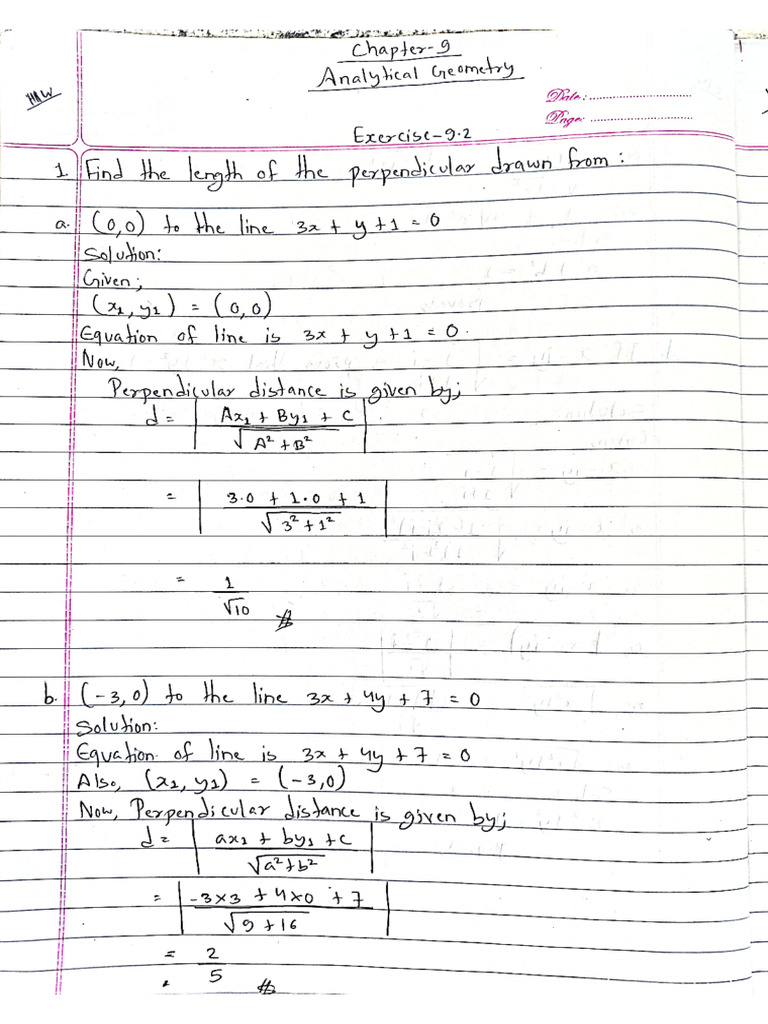 Chapter-9
Analytical Geometry
H/W
Date:
Page:
Exercise-9.2
1. Find the length of the perpendicular drawn from:
a. (0,0) to the line 3x + y +1 = 0
Solution:
Given;
(x1, y1) = (0,0)
Equation of line is 3x + y +1 = 0.
Now,
Perpendicular distance is given by;
d = | Ax1 + By1 + C
√A² + B² |
= | 3.0 + 1.0 + 1
√3² + 1² |
= 1
√10
b. (-3,0) to the line 3x + 4y + 7 = 0
Solution:
Equation of line is 3x + 4y + 7 = 0
Also, (x1, y1) = (-3,0)
Now, Perpendicular distance is given by;
d = | ax1 + by1 + c
√a² + b² |
= | -3×3 + 4×0 + 7
√9 + 16 |
= 2
5